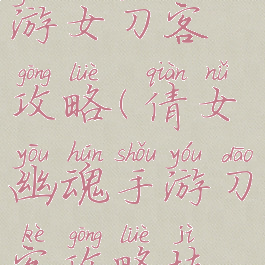 游女刀客
gōng lüè qiàn nǚ
攻略(倩女
yōu hún shǒu yóu dāo
幽魂手游刀
kè gōng lüè jì
客攻略技